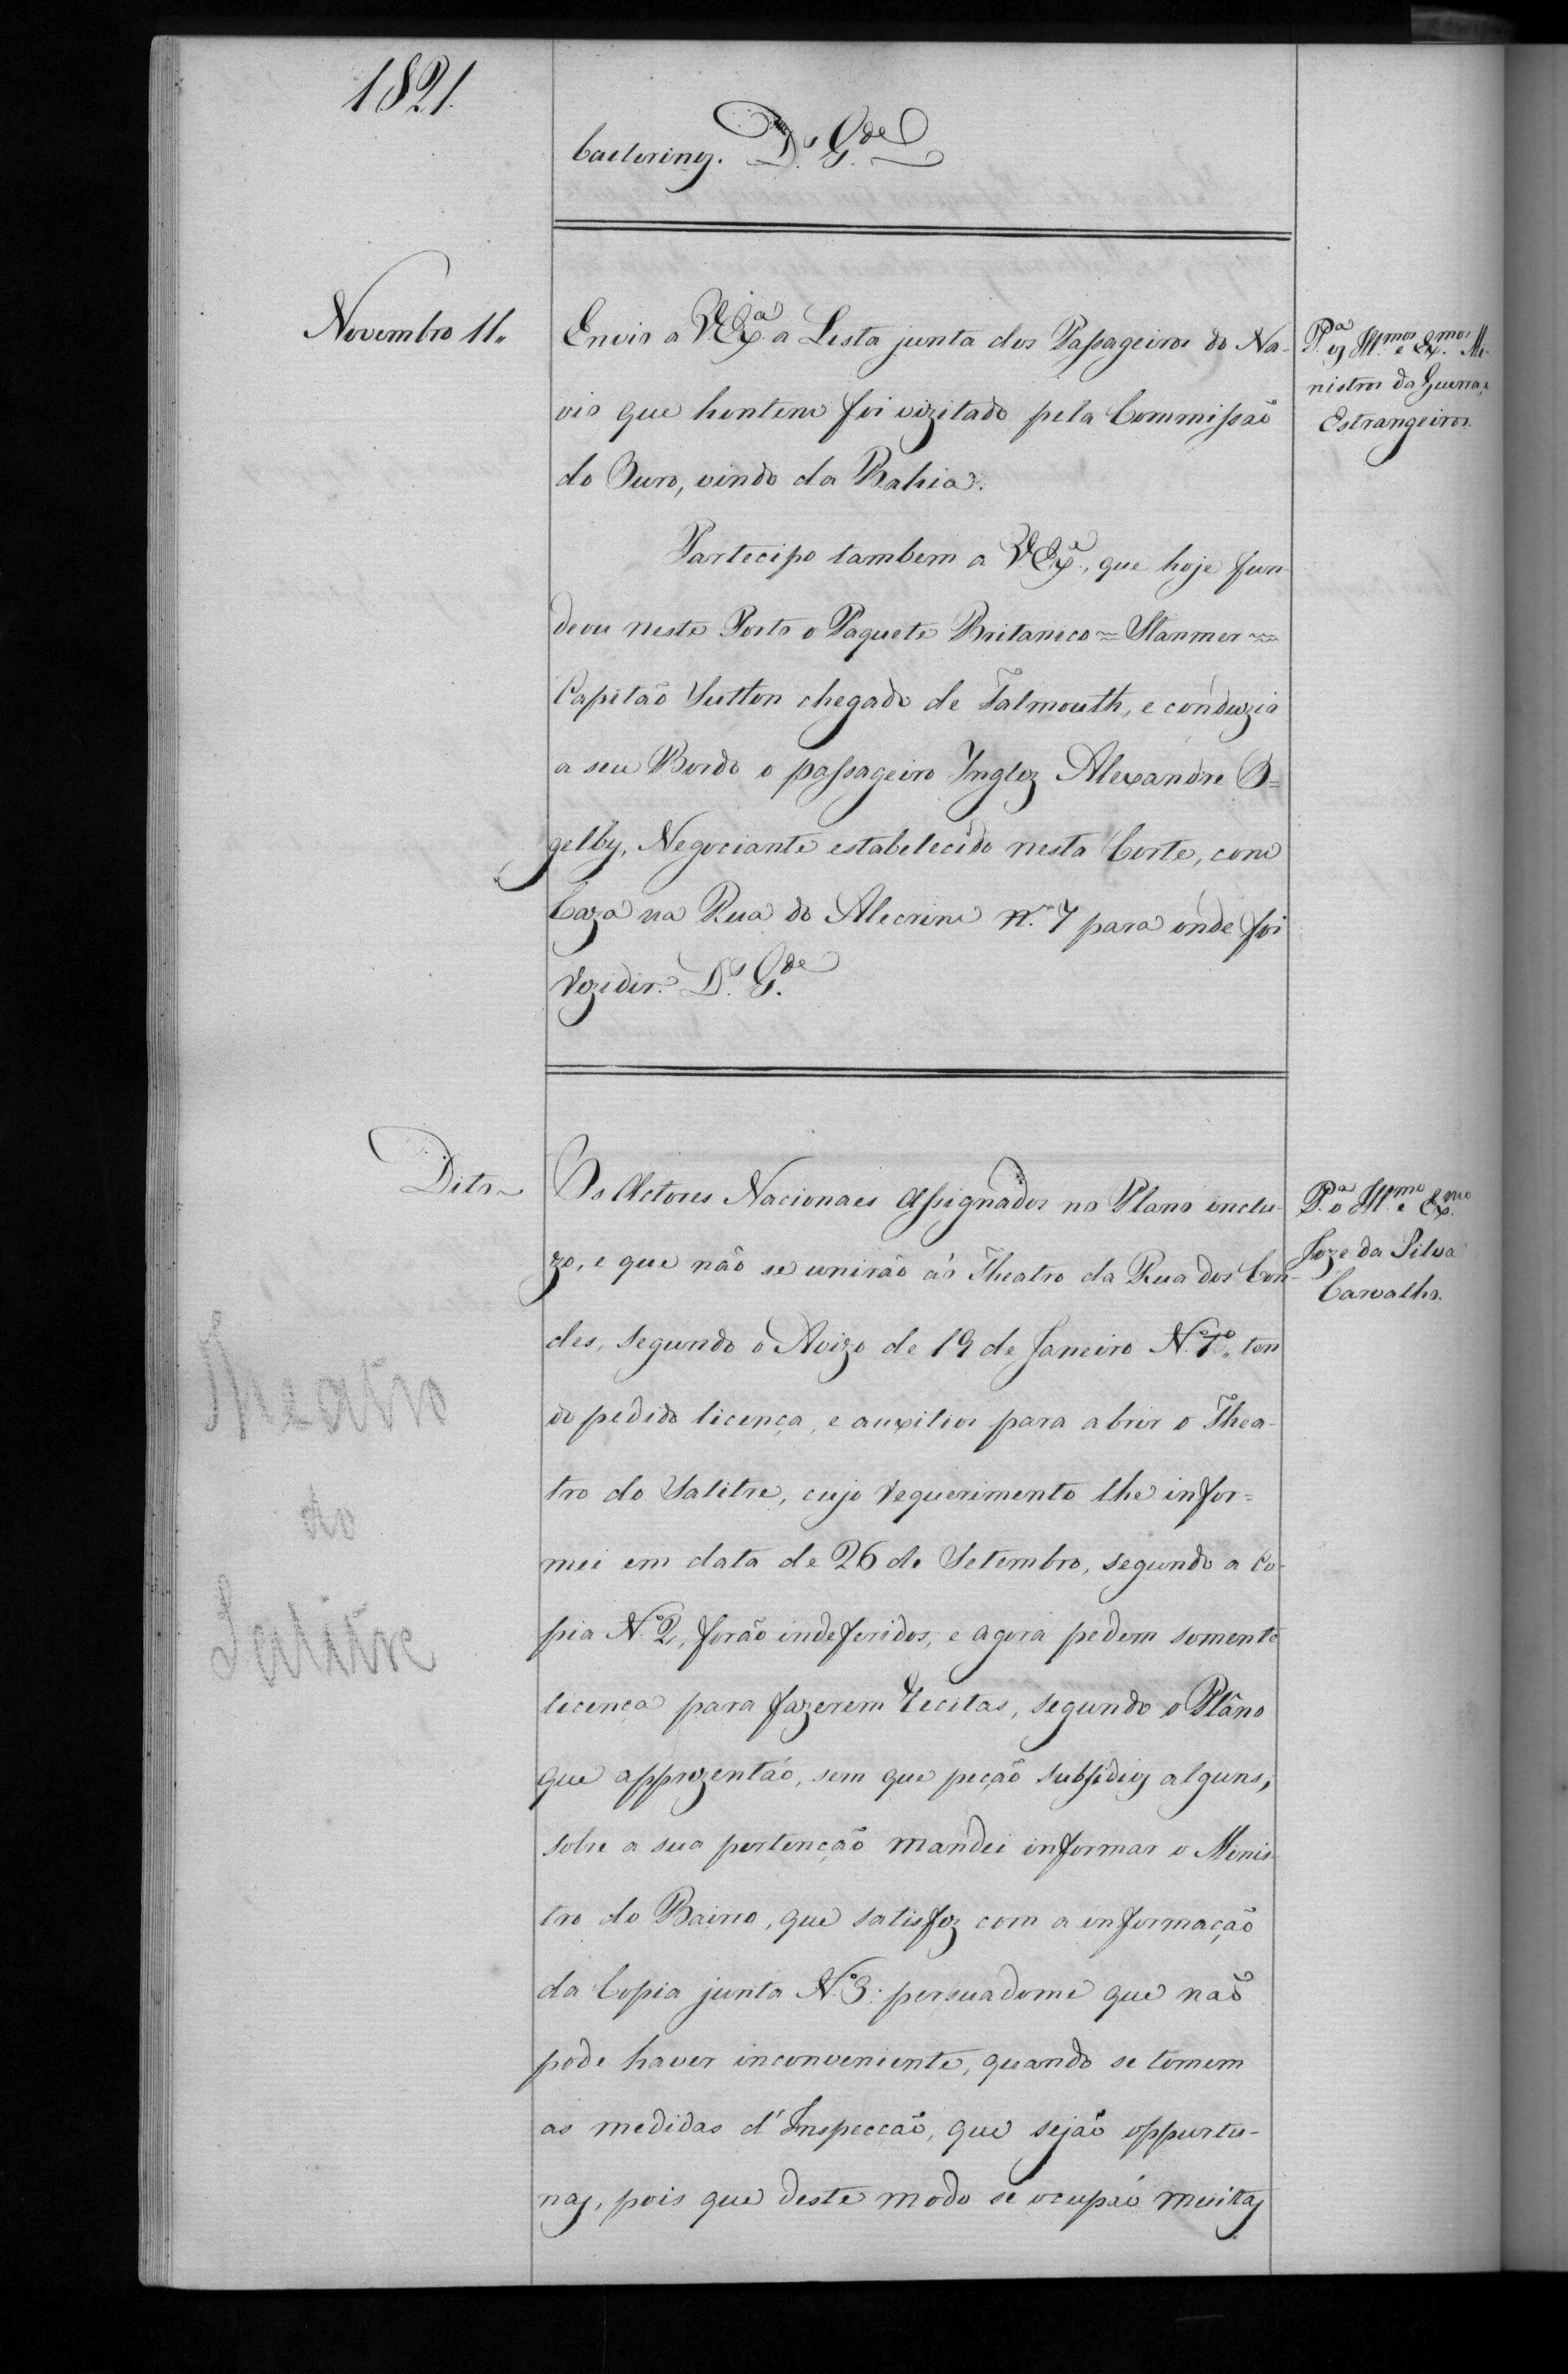 1821.
Caetering. D.s G.de
Novembro 11,,
Envio a VEx.a a Lista junta dos Passageiros do Na-
vio que hontem foi vizitado pela Commissão
do Ouro, vindo da Bahia.
P.a os Ill.mos e Ex.mos Mi-
nistros da Guerra, e
Estrangeiros.
Partecipo tambem a VEx.a, que hoje fun-
deou neste Porto o Paquete Britanico = Stanmer =
Capitão Sutton chegado de Falmouth, e conduzio
a seu Bordo o passageiro Inglez Alexandre O=
gelby, Negociante estabelecido nesta Corte, com
Caza na Rua do Alecrim N.º 7 para onde foi
rezidir. D.s G.de
Dito
Os Actores Nacionaes Assignados no Plano inclu-
zo, e que não se unirão ao Theatro da Rua dos Con-
des, segundo o Avizo de 19 de Janeiro N.º 1.º,, ten
do pedido licença, e auxilios para abrir o Thea-
tro do Salitre, cujo requerimento lhe infor=
mei em data de 26 de Setembro, segundo a Co-
pia N.º 2, forão indeferidos; e agora pedem somente
licença para fazerem recitas, segundo o Plano
que apprezentão, sem que peção subsidios alguns;
sobre a sua pertenção mandei informar o Minis
tro do Bairro, que satisfez com a informação
da Copia junta N.º 3: persuadome que não
pode haver inconveniente, quando se tomem
as medidas d'Inspecção, que sejão oppurtu-
nas, pois que deste modo se ocupão muitas
P.a o Ill.mo e Ex.mo
Joze da Silva
Carvalho.
Theatro
do
Salitre